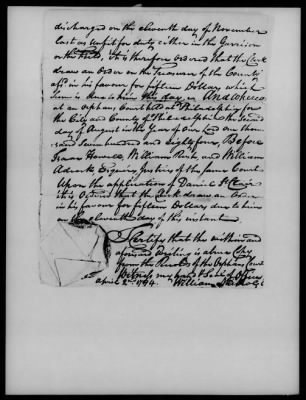 discharged on the eleventh day of November
last as unfit for duty either in the Garrison
or the Field, It is therefore ordered that the Clerk
draw an Order on the Treasurer of the County
afs.d in his favour for fifteen Dollars which
Sum is due to him this day in
at an Orphans Court held at Philadelphia for
the City and County of Philadelphia the second
day of August in the Year of our Lord one thou-
sand seven hundred and eighty four, Before
Isaac Howell, William Rush, and William
Adcock Esquires, Justices of the same Court
Upon the application of Daniel St Clair
it is Ordered that the Clerk draw an Order
in his favour for fifteen Dollars due to him
on the eleventh day of this instant
I Certify that the within and
aforesaid Writing is a true Copy
from the Records of the Orphans Court
Witness my hand & Seal of Office
April 2nd 1794. William